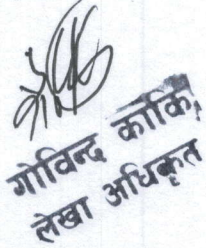 गोविन्द कार्कि
लेखा अधिकृत